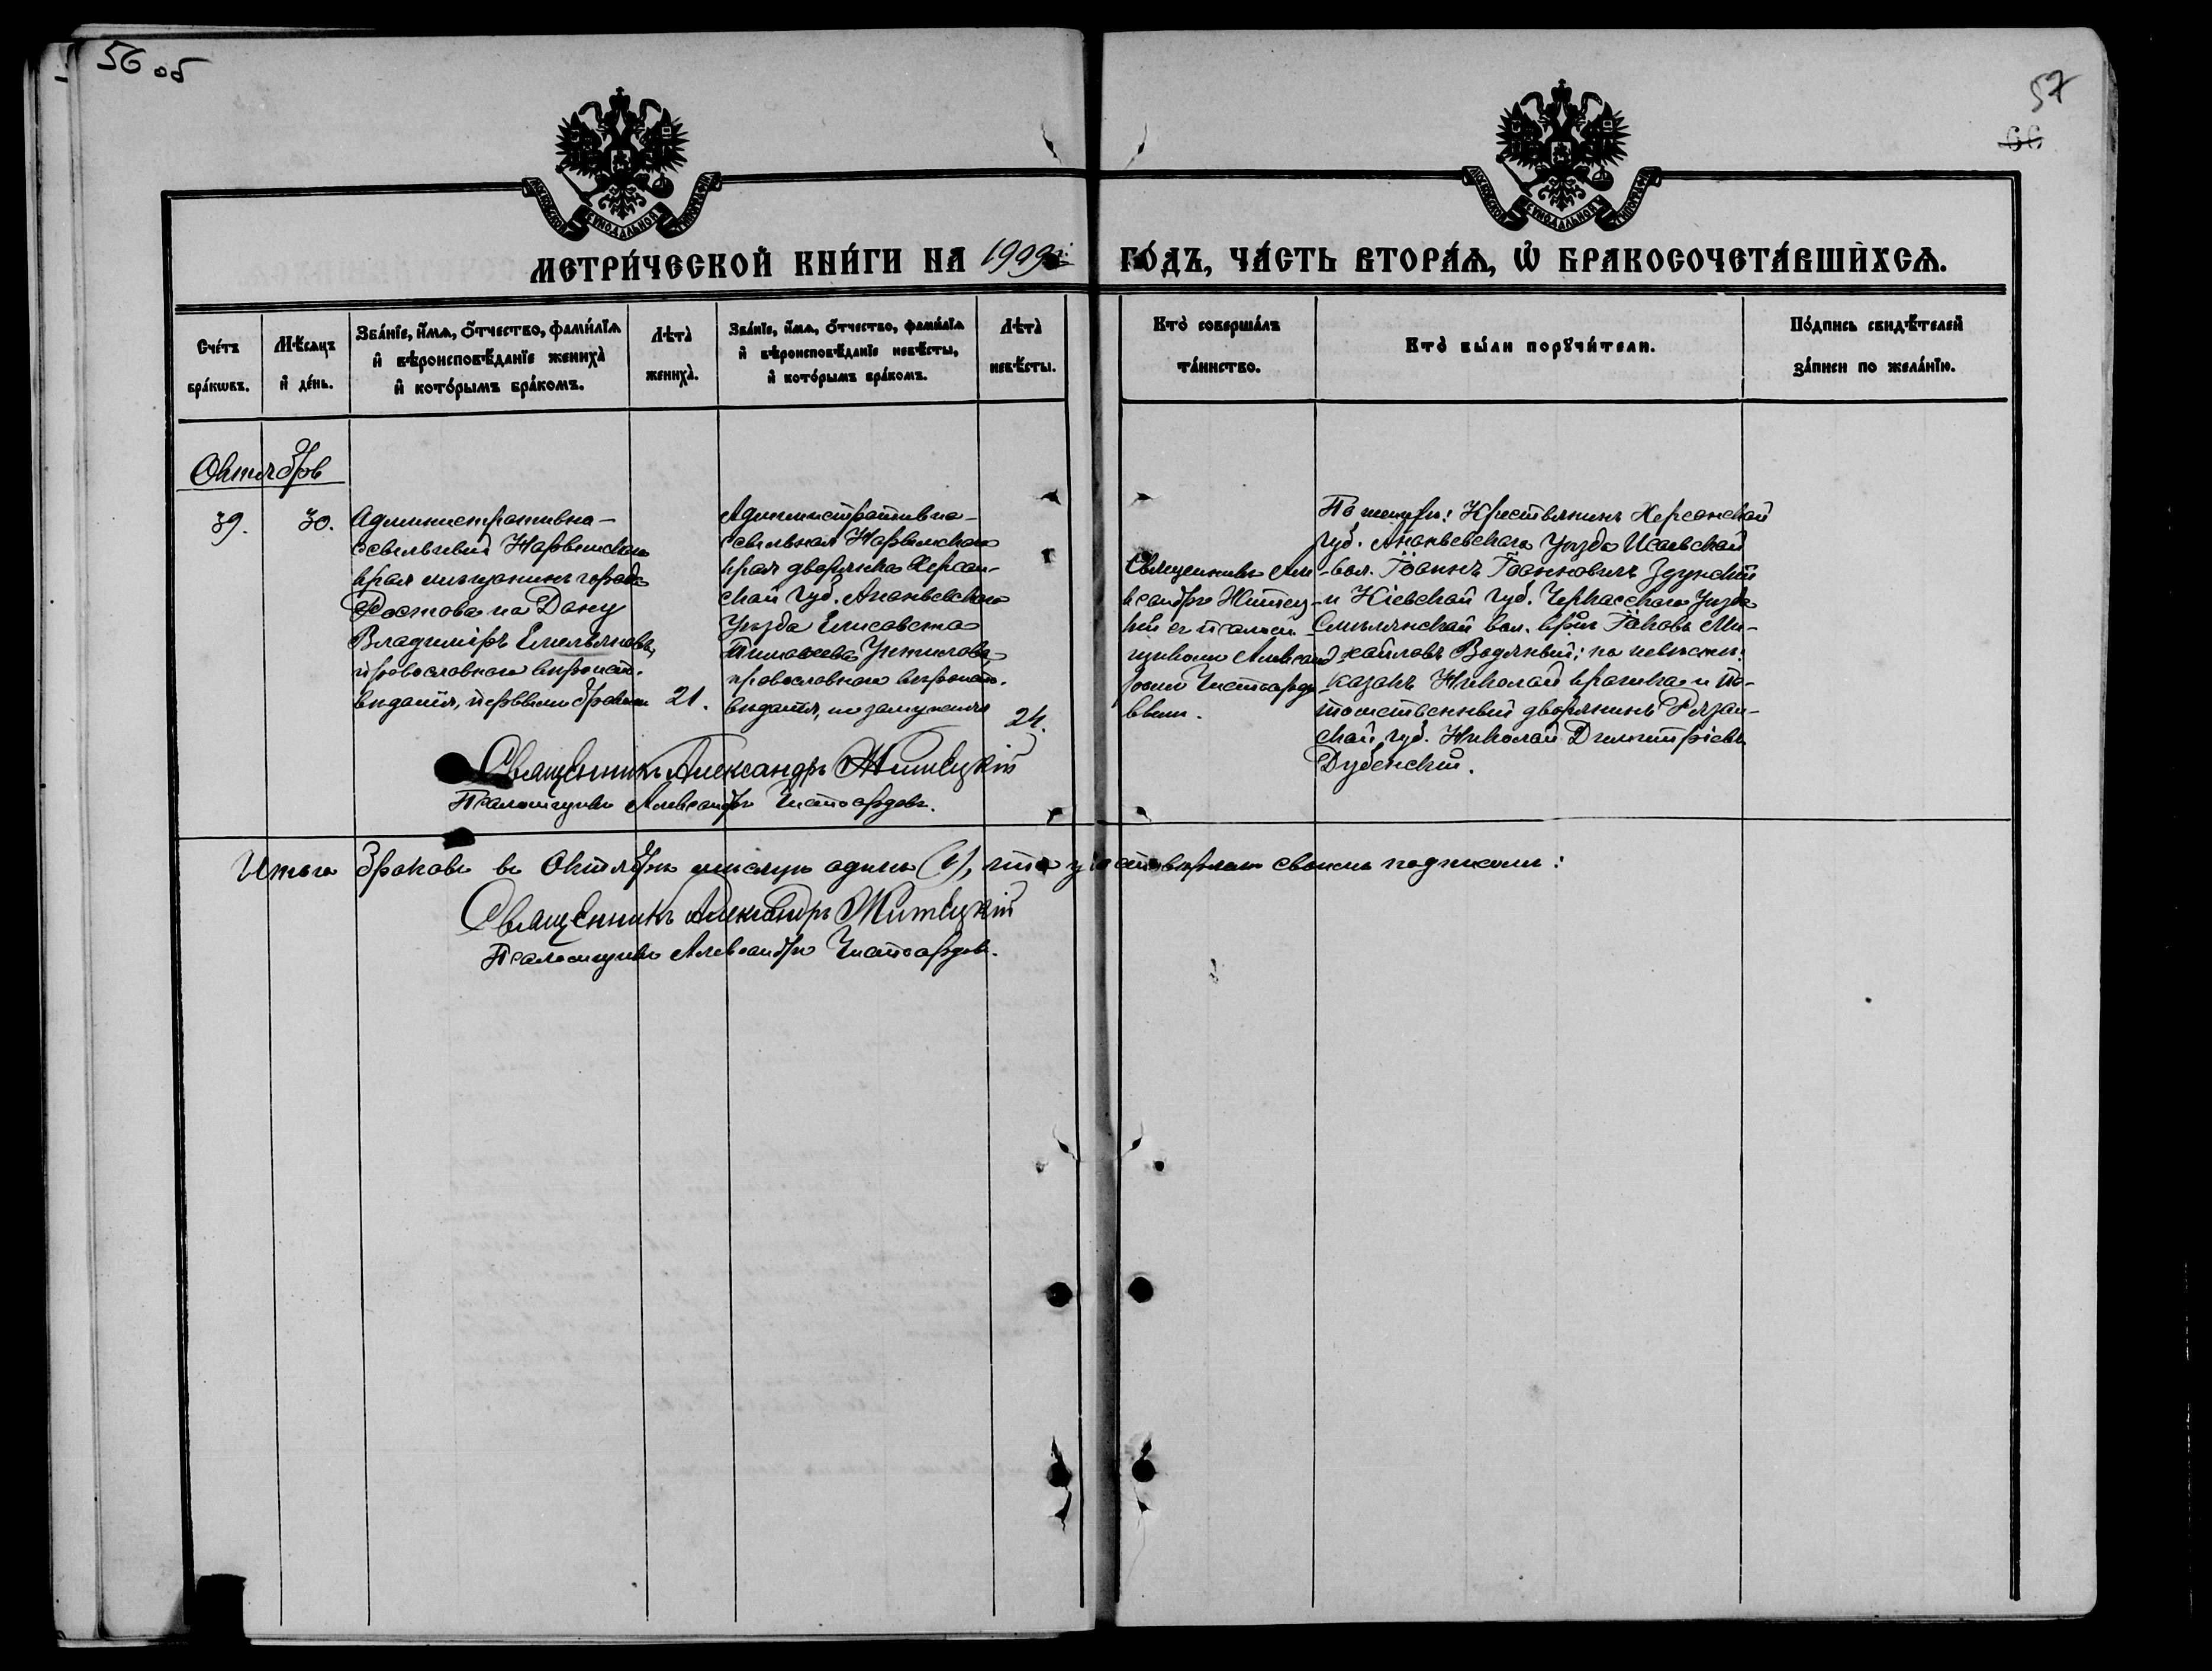 56 об
57
66
МОСКОВСКОЙ СѴНОДАЛЬНОЙ ТИПОГРАФІИ
МОСКОВСКОЙ СѴНОДАЛЬНОЙ ТИПОГРАФІИ
МЕТРИ́ЧЕСКОЙ КНИ́ГИ НА 1909 ГО́ДЪ, ЧА́СТЬ ВТОРА́Ѧ, Ѡ҆ БРАКОСОЧЕТА́ВШИХСѦ.
Сче́тъ
бра́кѡвъ.
Мѣ́сяцъ
и҆ де́нь.
Зва́нїе, и҆́мѧ, ѻ҆́тчество, фами́лїѧ
и҆ вѣроисповѣ́данїе жениха̀
и҆ кото́рымъ бра́комъ.
Лѣта̀
жениха̀.
Зва́нїе, и҆́мѧ, ѻ҆́тчество, фами́лїѧ
и҆ вѣроисповѣ́данїе невѣ́сты,
и҆ кото́рымъ бра́комъ.
Лѣта̀
невѣ́сты.
Кто̀ соверша́лъ
та́инство.
Кто̀ бы́ли порꙋчи́тели.
По́дпись свидѣ́телей
за́писи по жела́нїю.
Октябрь
39.
30.
Административно-
ссыльный Нарымскаго
края мѣщанинъ города
Ростова на Дону
Владиміръ Емельяновъ,
православнаго вѣроиспо-
вѣданія, первымъ бракомъ
21.
Административно-
ссыльная Нарымскаго
края дворянка Херсон-
ской губ. Ананьевскаго
уѣзда Елисавета
Тимоѳеева
православнаго вѣроиспо-
вѣданія,
24.
Священникъ Але-
ксандръ Житец-
кій съ псалом-
щикомъ Александ-
ромъ Чистосердо-
вымъ.
По женихѣ: Крестьянинъ Херсонской
губ. Ананьевскаго уѣзда Исаевской
вол. Іоаннъ Іоанновичъ Здунскій
и Кіевской губ. Черкасскаго уѣзда
Смѣлянской вол. кр-нъ Іаковъ Ми-
хайловъ Водяный; по невѣстѣ:
казакъ Николай и По-
томственный дворянинъ Рязан-
ской губ. Николай Димитріевъ
Дубенскій.
Священникъ Александръ Житецкій
Псаломщикъ Александръ Чистосердовъ.
Итого браковъ въ Октябрѣ мѣсяцѣ одинъ (1), что удостовѣряемъ своимъ подписомъ:
Священникъ Александръ Житецкій
Псаломщикъ Александръ Чистосердовъ.